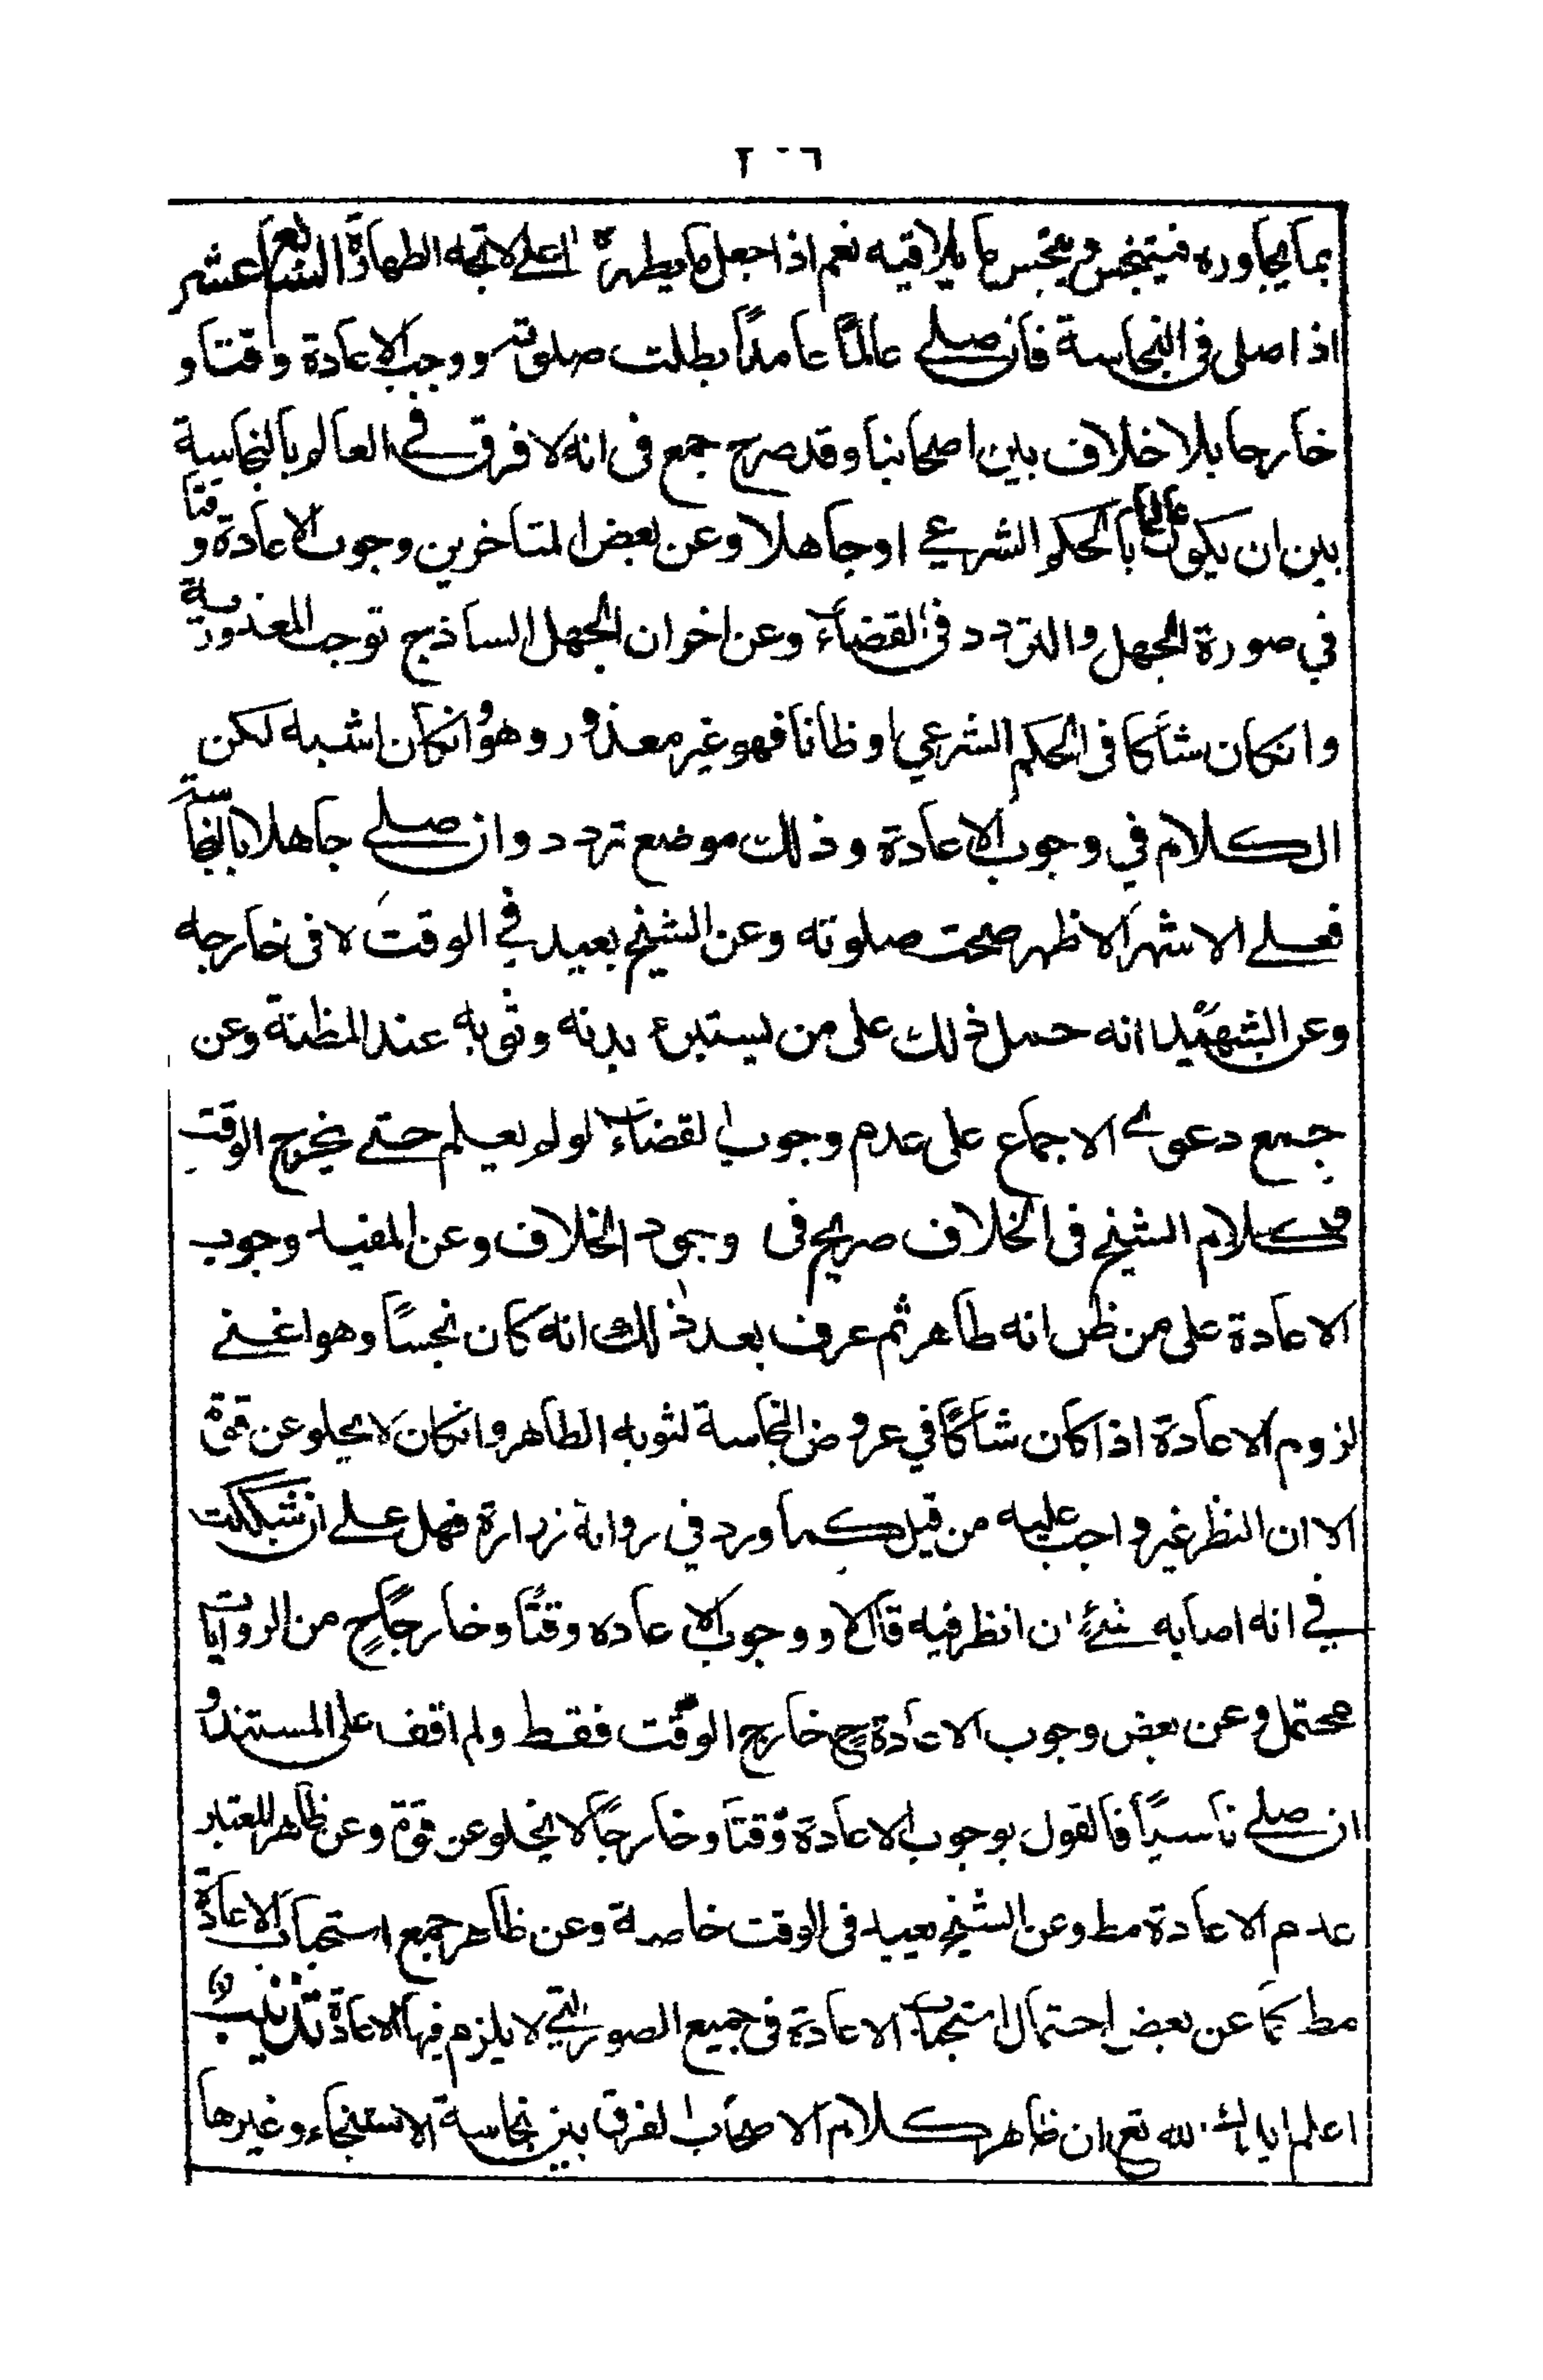 ٢٠٦
بما يجاوره فيتنجس وينجس ما يلاقيه نعم اذا جعل ما يطهره اعلى لاتجه الطهارة السابع عشر
اذا صلى فى النجاسة فان صلى عالمًا عامدًا بطلت صلوته ووجب الاعادة وقتا و
خارجا بلا خلاف بين اصحابنا وقد صرح جمع فى انه لا فرق فى العالم بالنجاسة
بين ان يكون عالما بالحكم الشرعي او جاهلا وعن بعض المتاخرين وجوب الاعادة وقتا
في صورة الجهل والتردد فى القضاء وعن اخر ان الجهل الساذج توجب المعذورية
وانكان شاكا فى الحكم الشرعي او ظانا فهو غير معذور وهو وانكان اشبه لكن
الكلام في وجوب الاعادة وذلك موضع تردد وان صلى جاهلا بالنجاسة
فعلى الاشهر الاظهر صحت صلوته وعن الشيخ يعيد في الوقت لا فى خارجه
وعن الشهيد انه حمل ذلك على من يستبرء بدنه وثوبه عند المظنة وعن
جمع دعوى الاجماع على عدم وجوب القضاء لو لم يعلم حتى يخرج الوقت
وكلام الشيخ فى الخلاف صريح فى وجود الخلاف وعن المفيد وجوب
الاعادة على من ظن انه طاهر ثم عرف بعد ذلك انه كان نجسًا وهو اعنى
لزوم الاعادة اذا كان شاكًا في عروض النجاسة لثوبه الطاهر وانكان لا يخلو عن قوة
الا ان النظر غير واجب عليه من قبل كما ورد في رواية زرارة فهل على ان شككت
في انه اصابه شئ ان انظر فيه قال لا ووجوب الاعاده وقتًا وخارجًا ح من الروايات
محتمل وعن بعض وجوب الاعادة ح خارج الوقت فقط ولم اقف على المستند و
ان صلى ناسيًا فالقول بوجوب الاعادة وقتا وخارجًا لا يخلو عن قوة وعن ظاهر المعتبر
عدم الاعادة مط وعن الشيخ يعيد فى الوقت خاصة وعن ظاهر جمع استحباب الاعادة
مط كما عن بعض احتمال استحباب الاعادة فى جميع الصور التي لا يلزم فيها الاعادة تذنيب
اعلم ايدك الله تع ان ظاهر كلام الاصحاب الفرق بين نجاسة الاستنجاء وغيرها